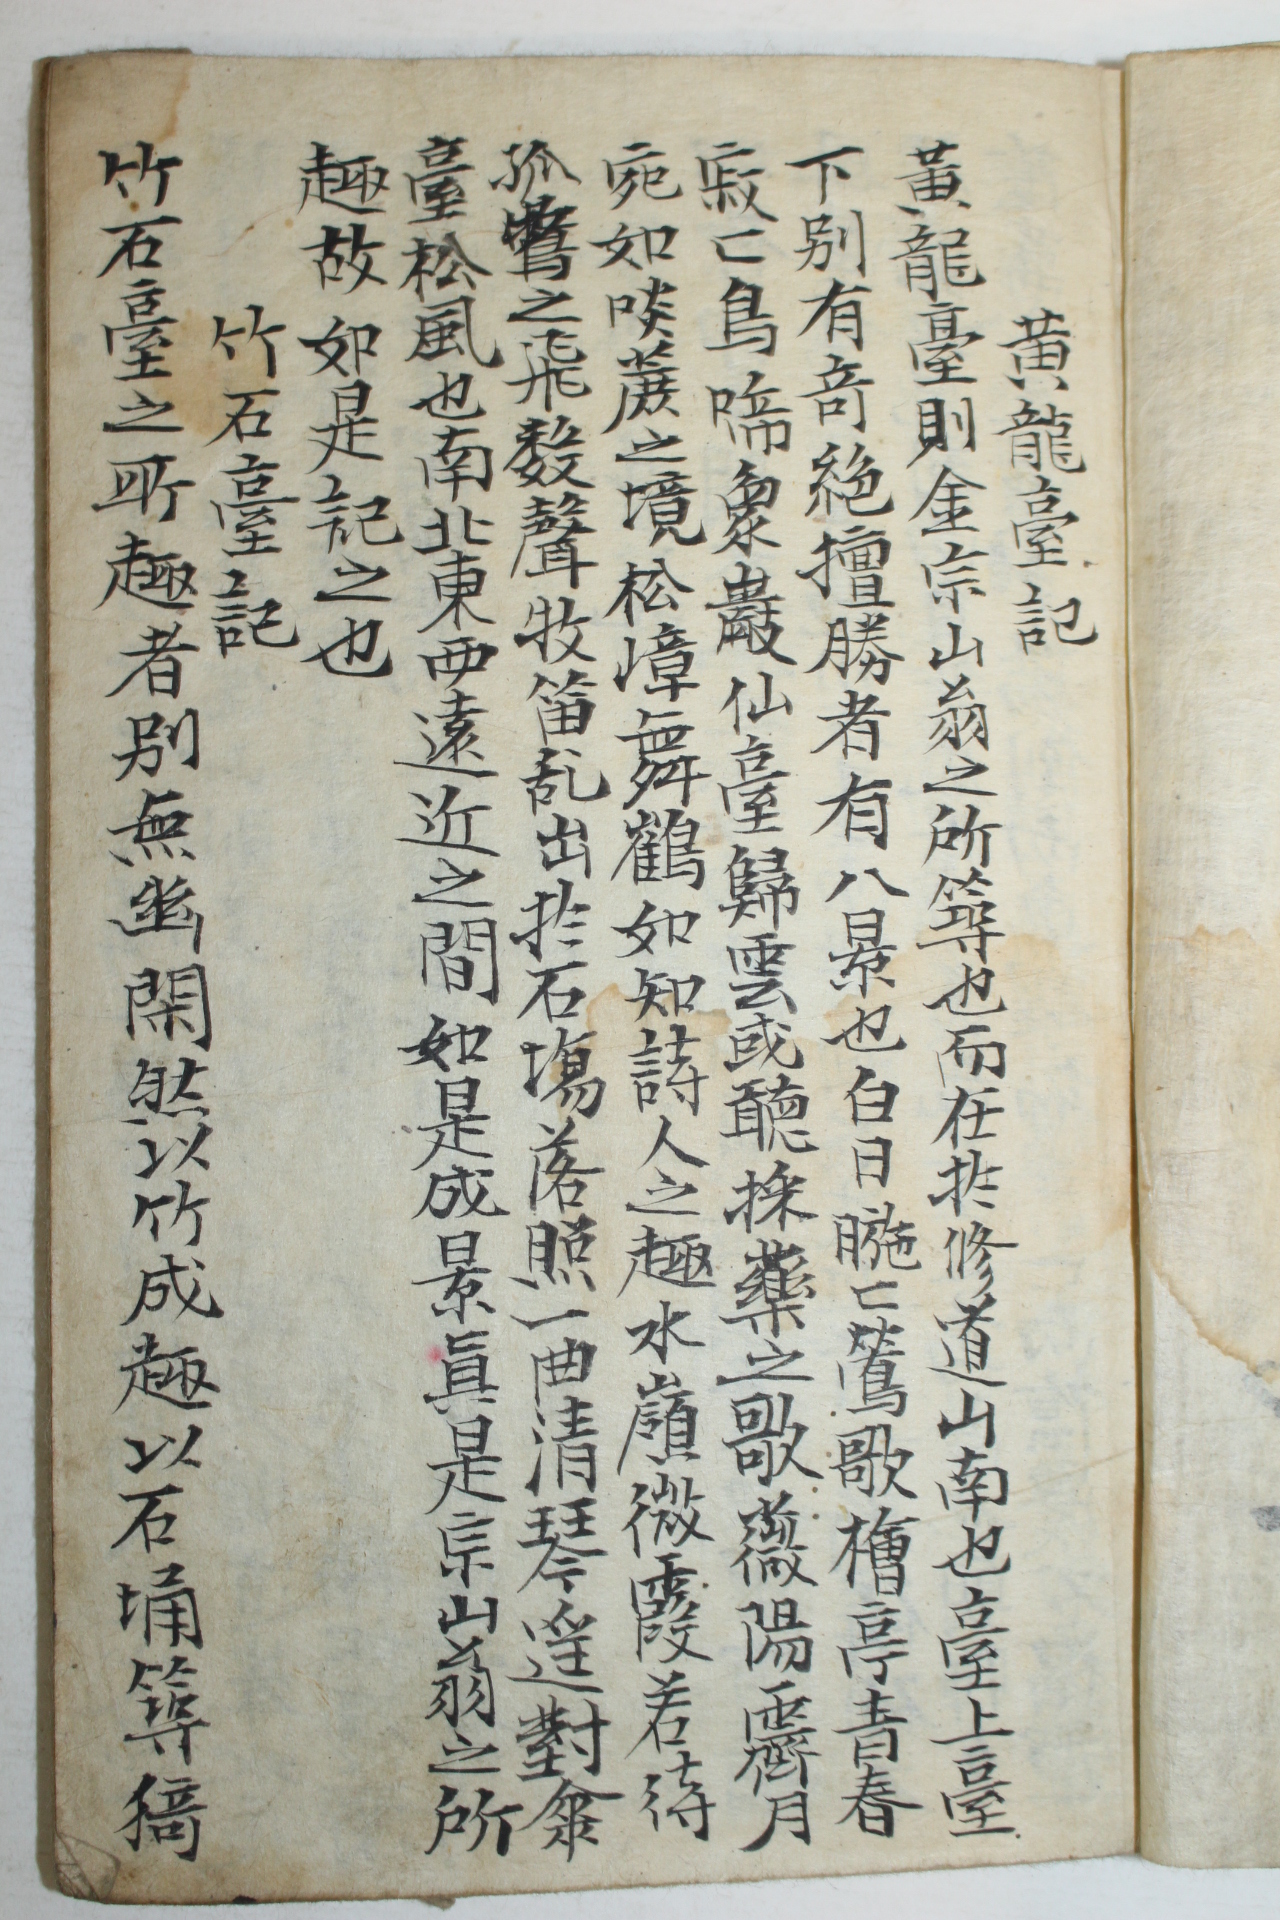 黃龍臺記
黃龍臺則金宗山翁之所築也而在於修道山南也臺上臺
下別有奇絶擅勝者有八景也白日曨〻鶯歌檜亭靑春
寂〻鳥啼象巖仙臺歸雲或聽採藥之歌薇陽霽月
宛如啖蔗之境松嶂舞鶴如知詩人之趣水嶺微霞若待
孤鶩之飛數聲牧笛乱出於石塲落照一曲清琴逕對傘
臺松風也南北東西遠近之間如是成景眞是宗山翁之所
趣故如是記之也
竹石臺記
竹石臺之所趣者別無幽閑然以竹成趣以石埇築